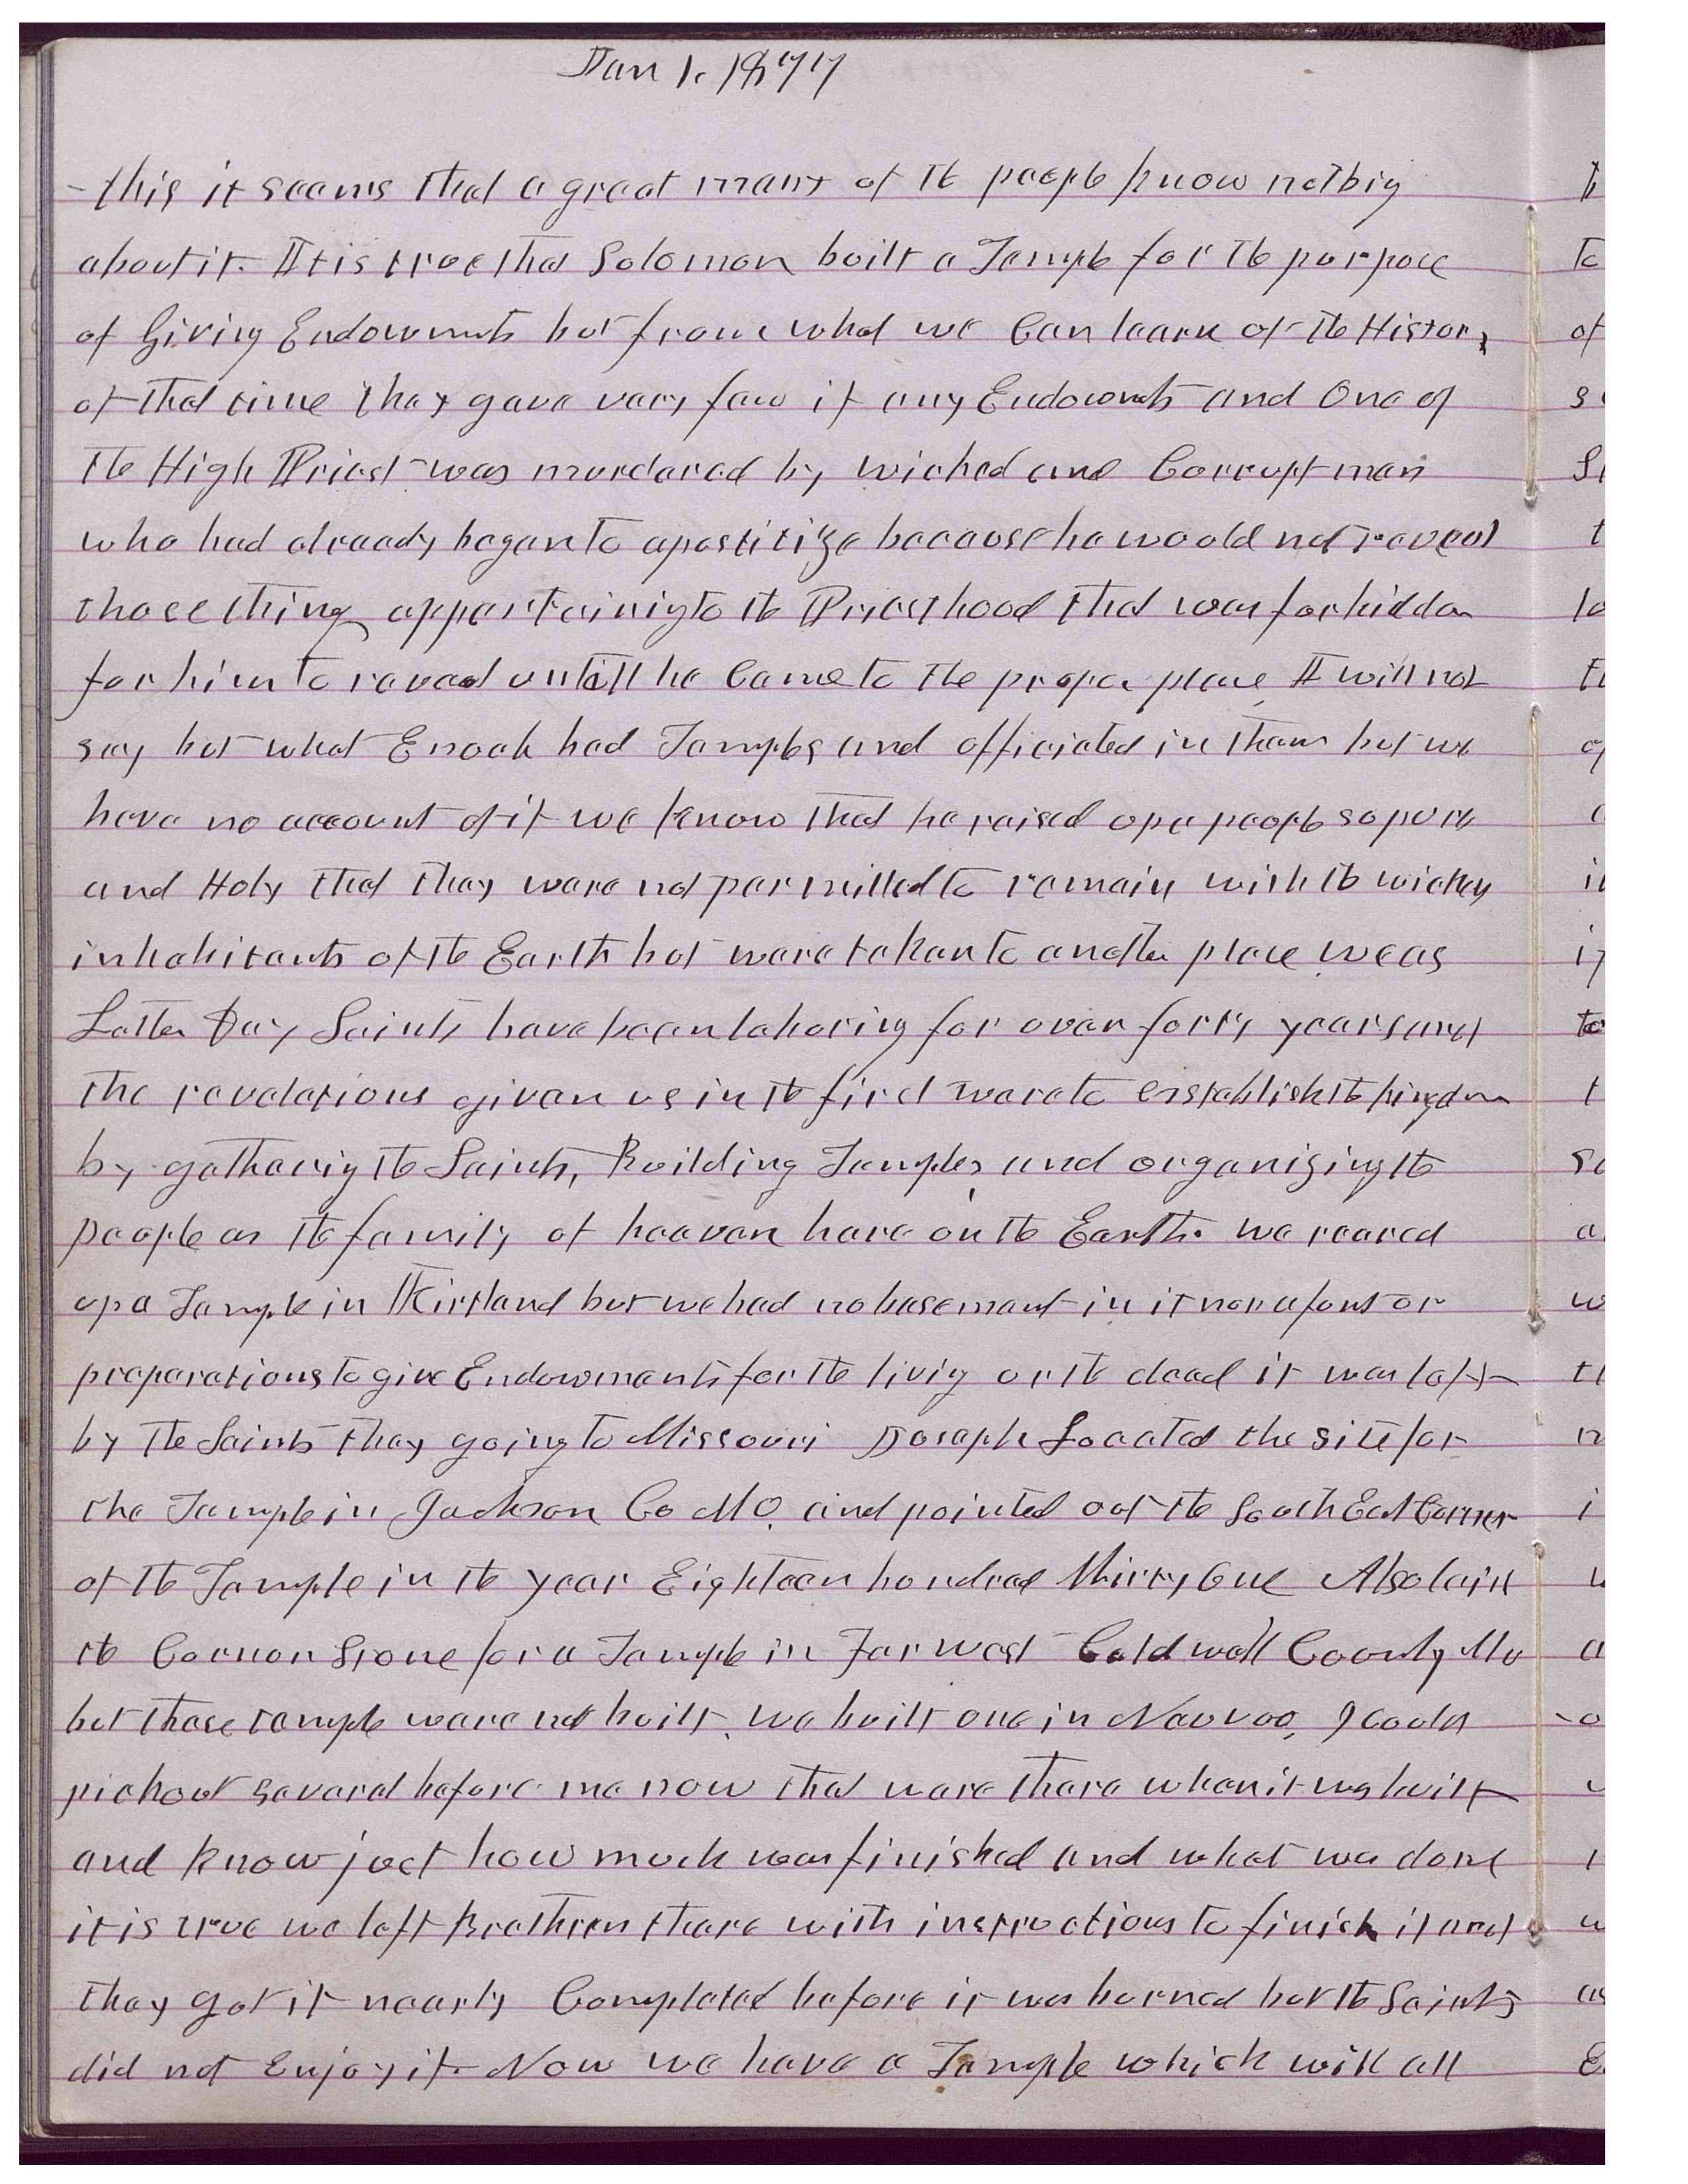 Jan 1. 1877
this it seems that a great many of the people know nothing
about it. It is true that Solomon built a Temple for the purpose
of Giving Endowments but from what we Can learn of the History
of that time they gave very few if any Endowments and One of
the High Priest was murdered by wicked and Corrupt men
who had already began to apostitize because he would not reveal
those things appertaining to the Priesthood that was forbidden
for him to reveal untill he Came to the proper place, I will not
say but what Enoch had Temples and officiated in them but we
have no account of it we know that he raised up a people so pure
and Holy that they were not permitted to remain with the wicked
inhabitants of the Earth but were taken to another place, we as
Latter Day Saints have been laboring for over forty years and
the revelations given us in the first were to esstablish the kingdom
by gathering the Saints, Building Temples, and organizing the
people as the family of heaven here on the Earth. we reared
up a Temple in Kirtland but we had no basement in it nor a font or
preparations to give Endowments for the living or the dead it was left
by the Saints they going to Missouri Joseph Located the site for
the Temple in Jackson Co MO. and pointed out the South East Corner
of the Temple in the year Eighteen hundred Thirty One Also laid
the Corner Stone for a Temple in Far West Caldwell County Mo
but these temple were not built, we built one in Nauvoo, I could
pick out several before me now that were there when it was built
and know just how much was finished and what was done
it is true we left Brethren there with instructions to finish it and
they got it nearly Completed before it was burned but the Saints
did not Enjoy it. Now we have a Temple which will all